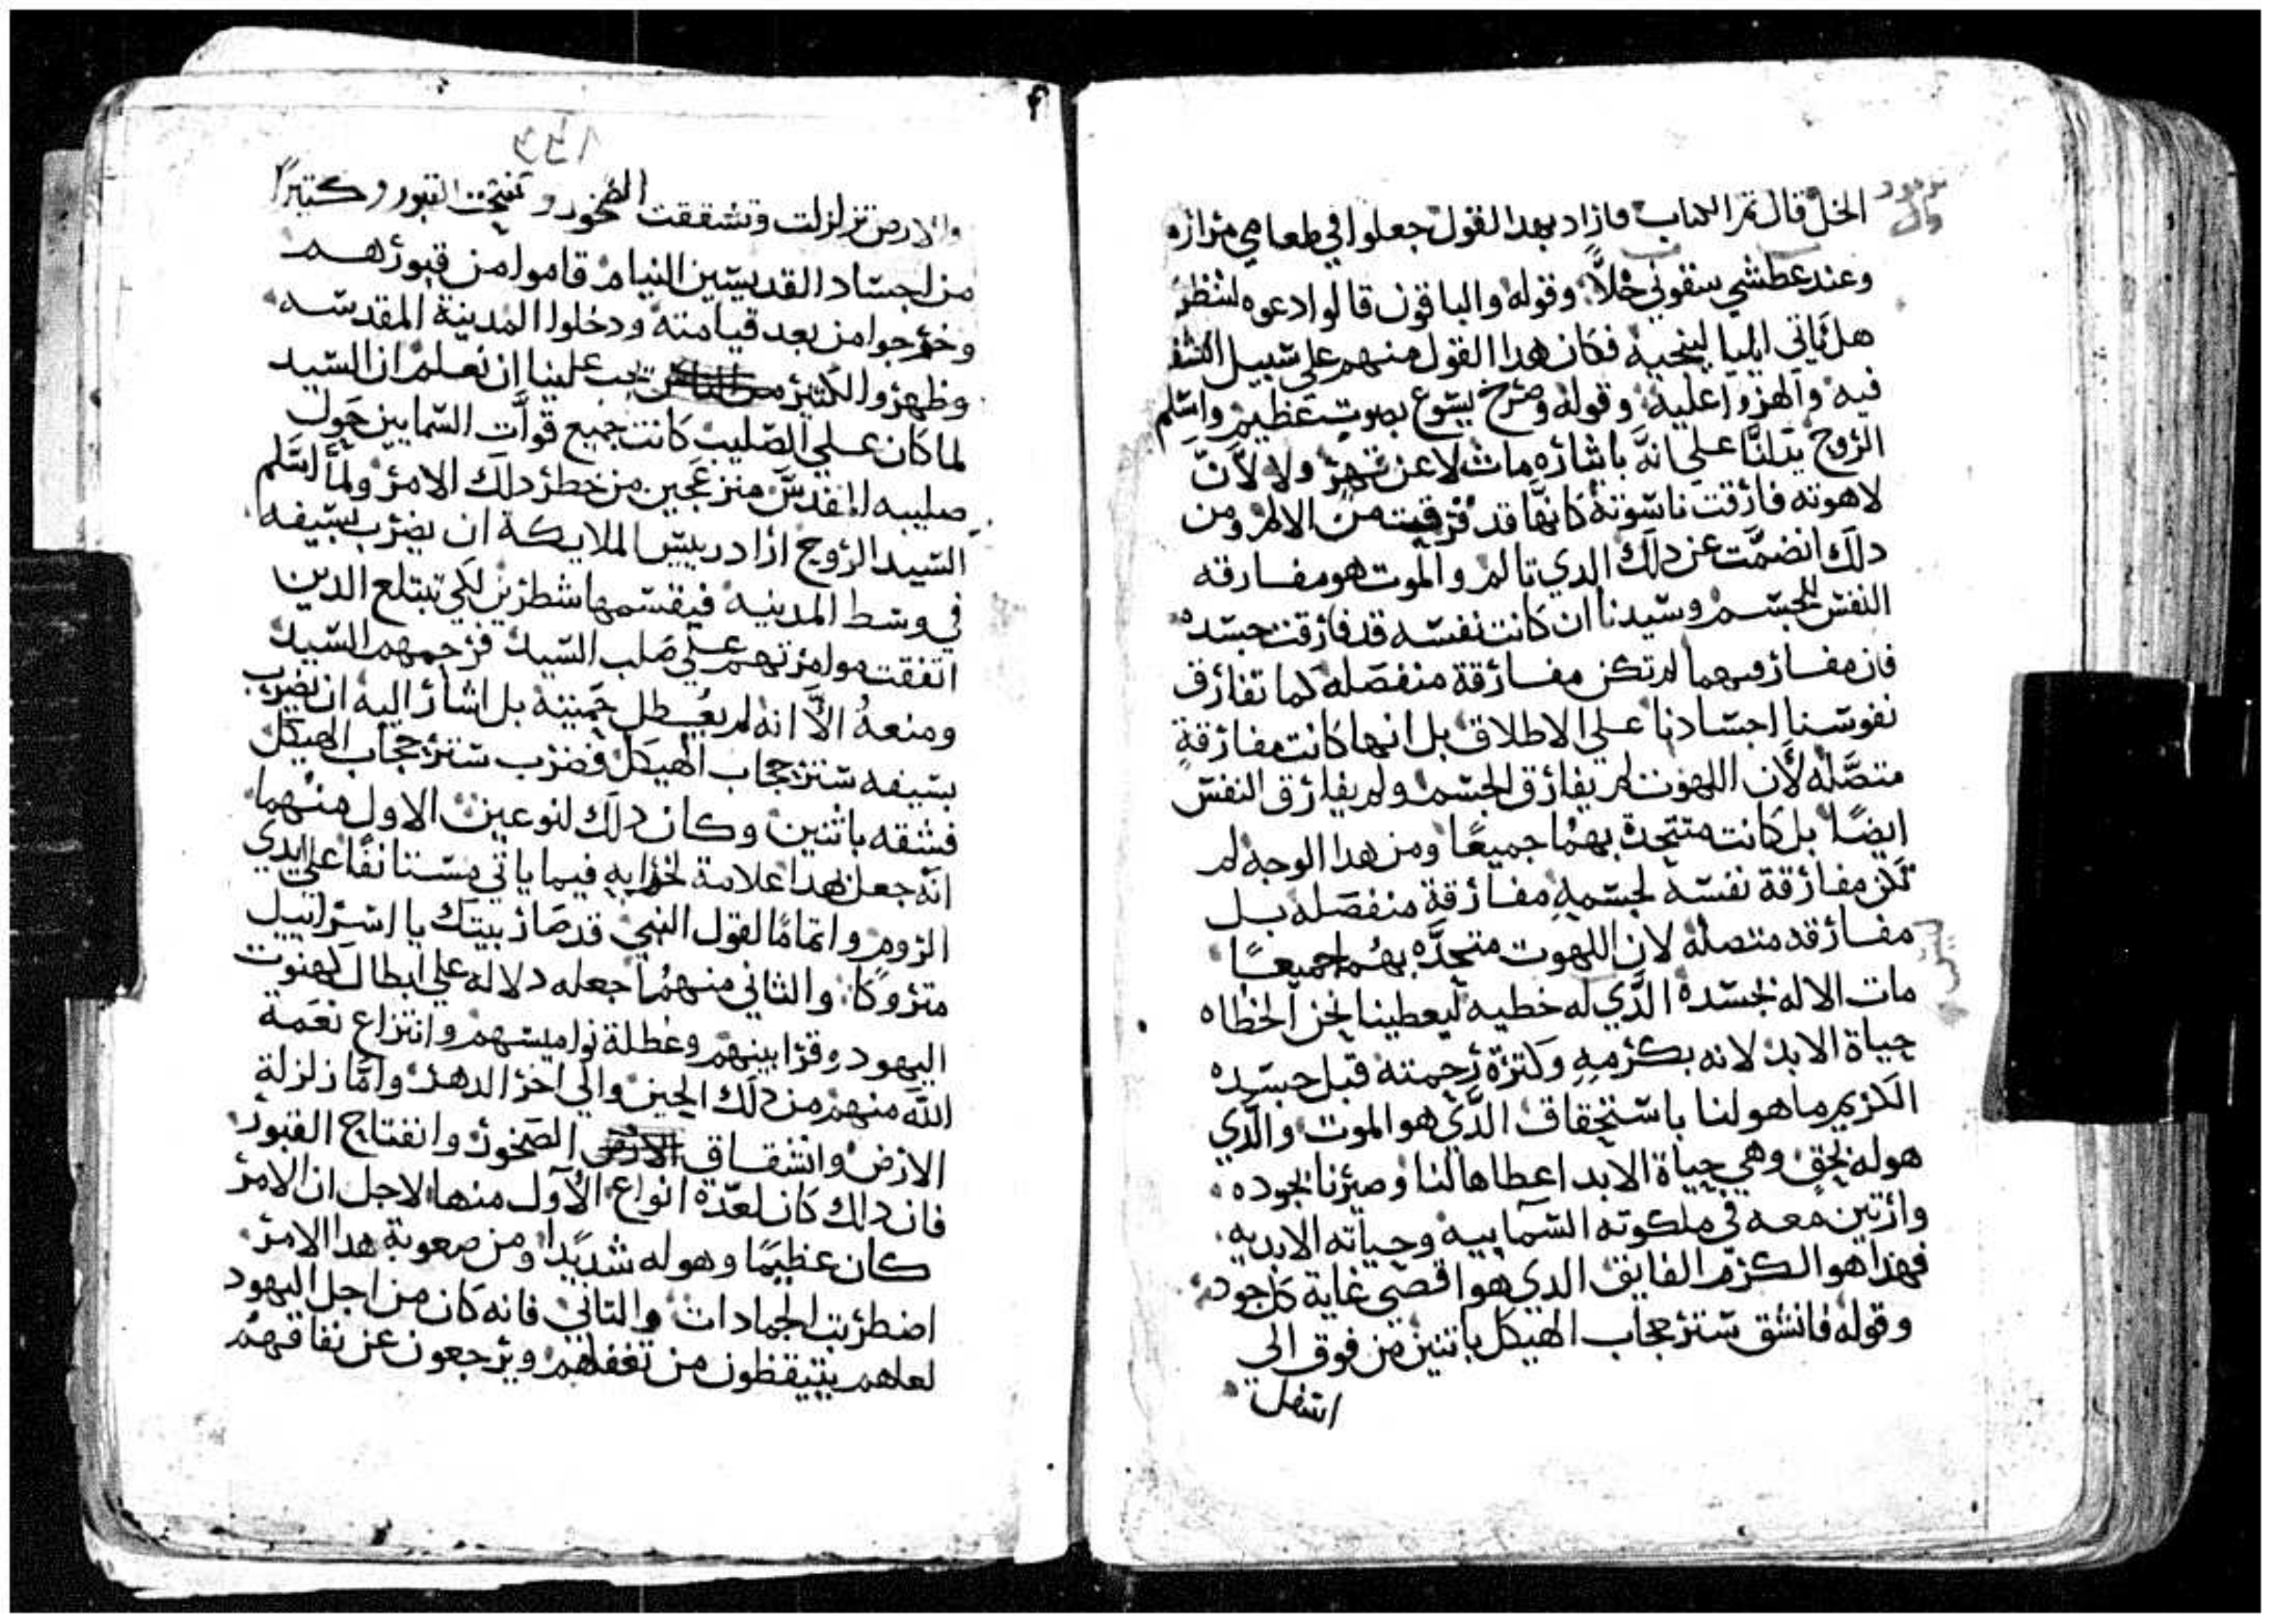 الخل قال تم الكتاب فازاد بهدا القول جعلوا في طعامي مرازه
وعند عطشي سقوني خلاً وقوله والباقون قالوا دعوه لننظر
هل ياتي ايليا لينجيه فكان هدا القول منهم علي سبيل التشف
فيه والهزوا عليه وقوله وصرخ يسوع بصوت عظيم واسلم
الروح يدلنا علي انه باشاره مات لا عن قهر ولا لأنّ
لاهوته فارقت ناسوته كانها قد فرقت من الالم ومن
دلك انضمت عن دلك الدي تالم والموت هو مفارقه
النفس للجسم وسيدنا ان كانت نفسه قد فارقت جسده
فان مفارقتهما لم تكن مفارقة منفصله كما تفارق
نفوسنا اجسادنا علي الاطلاق بل انها كانت مفارقةٍ
متصّله لأن اللهوت لم يفارق الجسم ولم يفارق النفس
ايضًا بل كانت متحدة بهما جميعًا ومن هدا الوجه لم
تكن مفارقة نفسه لجسمهِ مفارقة منفصله بل
مفارقه متصله لان اللهوت متحدّه بهما جميعًا
مات الاله بجسده الدّي له خطيه ليعطينا نحن الخطاه
حياة الابد لانه بكرمهِ وكترة رحمته قبل جسده
الكريم ما هو لنا باستحقاق الدّي هو الموت والدّي
هو له بحقٍ وهي حياة الابد اعطاها لنا وصيرنا بجوده
وارتين معه في ملكوته السماييه وحياته الابديه
فهدا هو الكرم الفايق الدي هو اقصي غاية كل جود
وقوله فانشق ستر حجاب الهيكل باتنين من فوق الي
اسفل
والارض تزلزلت وتشققت الصخور وتفتحت القبور وكتيرًا
من اجساد القديسين النيام قاموا من قبورهم
وخرجوا من بعد قيامته ودخلوا المدينة المقدسه
وظهروا لكتير يجب علينا ان نعلم ان السيد
لما كان علي الصليب كانت جميع قوات السمايين حول
صليبه المقدس منزعجين من خطر دلك الامر ولما اسلم
السيد الروح اراد رييس الملايكة ان يضرب بسيفه
في وسط المدينه فيقسمها شطرين لكي تبتلع الدين
اتفقت موامرتهم علي صلب السيد فرحمهم السيد
ومنعهُ الاّ انه لم يعطل حميته بل اشار اليه ان يضرب
بسيفه ستر حجاب الهيكل فضرب ستر حجاب الهيكل
فشقه باثنين وكان دلك لنوعين الاول منهما
انّه جعل هدا علامة لخرابهِ فيما ياتي مستانفًا علي ايدي
الروم واتمامًا لقول النبي قد صار بيتك يا اسراييل
متروكًا والثاني منهما جعله دلاله علي ابطال كهنوت
اليهود وقرابينهم وعطلة نواميسهم وانتزاع نعمة
اللّه منهم من دلك الحين والي اخر الدهر وامّا زلزلة
الارض وانشقاق الصخور وانفتاح القبور
فان دلك كان لعدّة انواع الاول منها لاجل ان الامر
كان عظيمًا وهوله شديدًا ومن صعوبة هدا الامر
اضطربت الجمادات والتاني فانه كان من اجل اليهود
لعلهم يتيقظون من تغفلهم ويرجعون عن نفاقهم